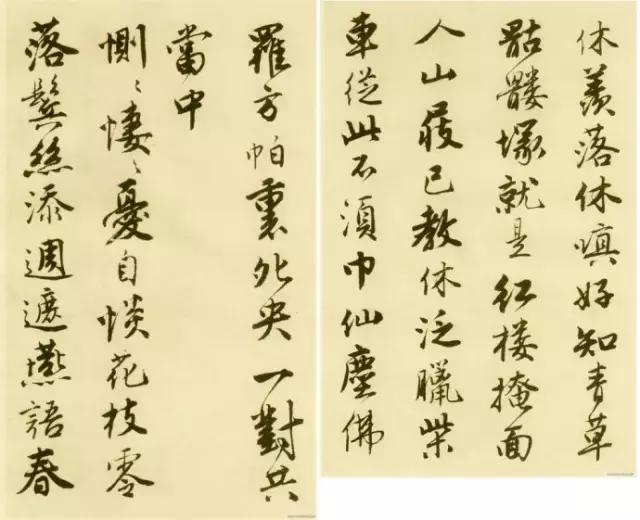 休羨落休嗔好知青草
骷髏塚就是紅樓掩面
人山屐已教休泛臘柴
車從此不須巾仙塵佛
羅方帕裹夗央一對共
當中
惻〻悽〻憂自惔花枝零
落鬢絲添週遮燕語春